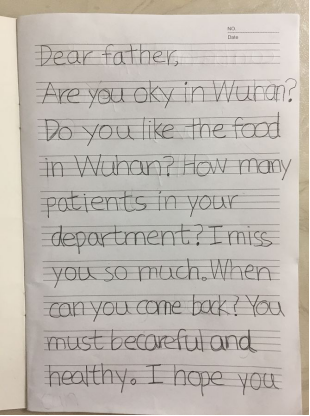 NO.
Date
Dear father,
Are you oky in Wuhan?
Do you like the food
in Wuhan? How many
patients in your
department? I miss
you so much. When
can you come back? You
must becareful and
healthy. I hope you